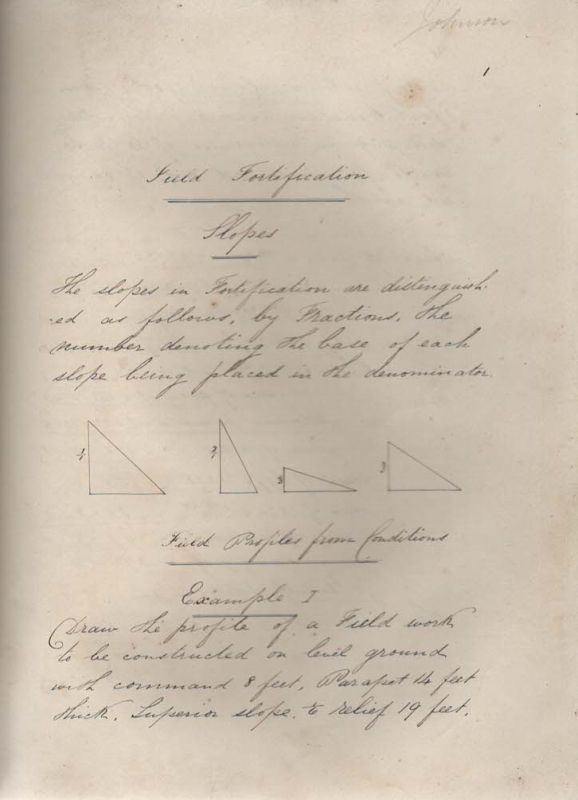 Johnson
1
Field Fortification
Slopes
The slopes in Fortification are distinguish-
-ed as follows, by Fractions, the
number denoting the base of each
slope being placed in the denominator.
Field Profiles from Conditions
Example I
Draw the profile of a Field work
to be constructed on level ground
with command 8 feet, Parapet 14 feet
thick. Superior slope. relief 19 feet.